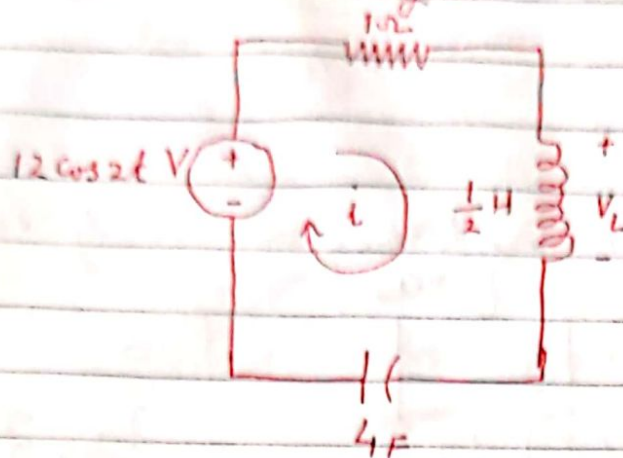 1Ω
12 cos2t V
+
-
i
1/2 H
+
VL
-
4F